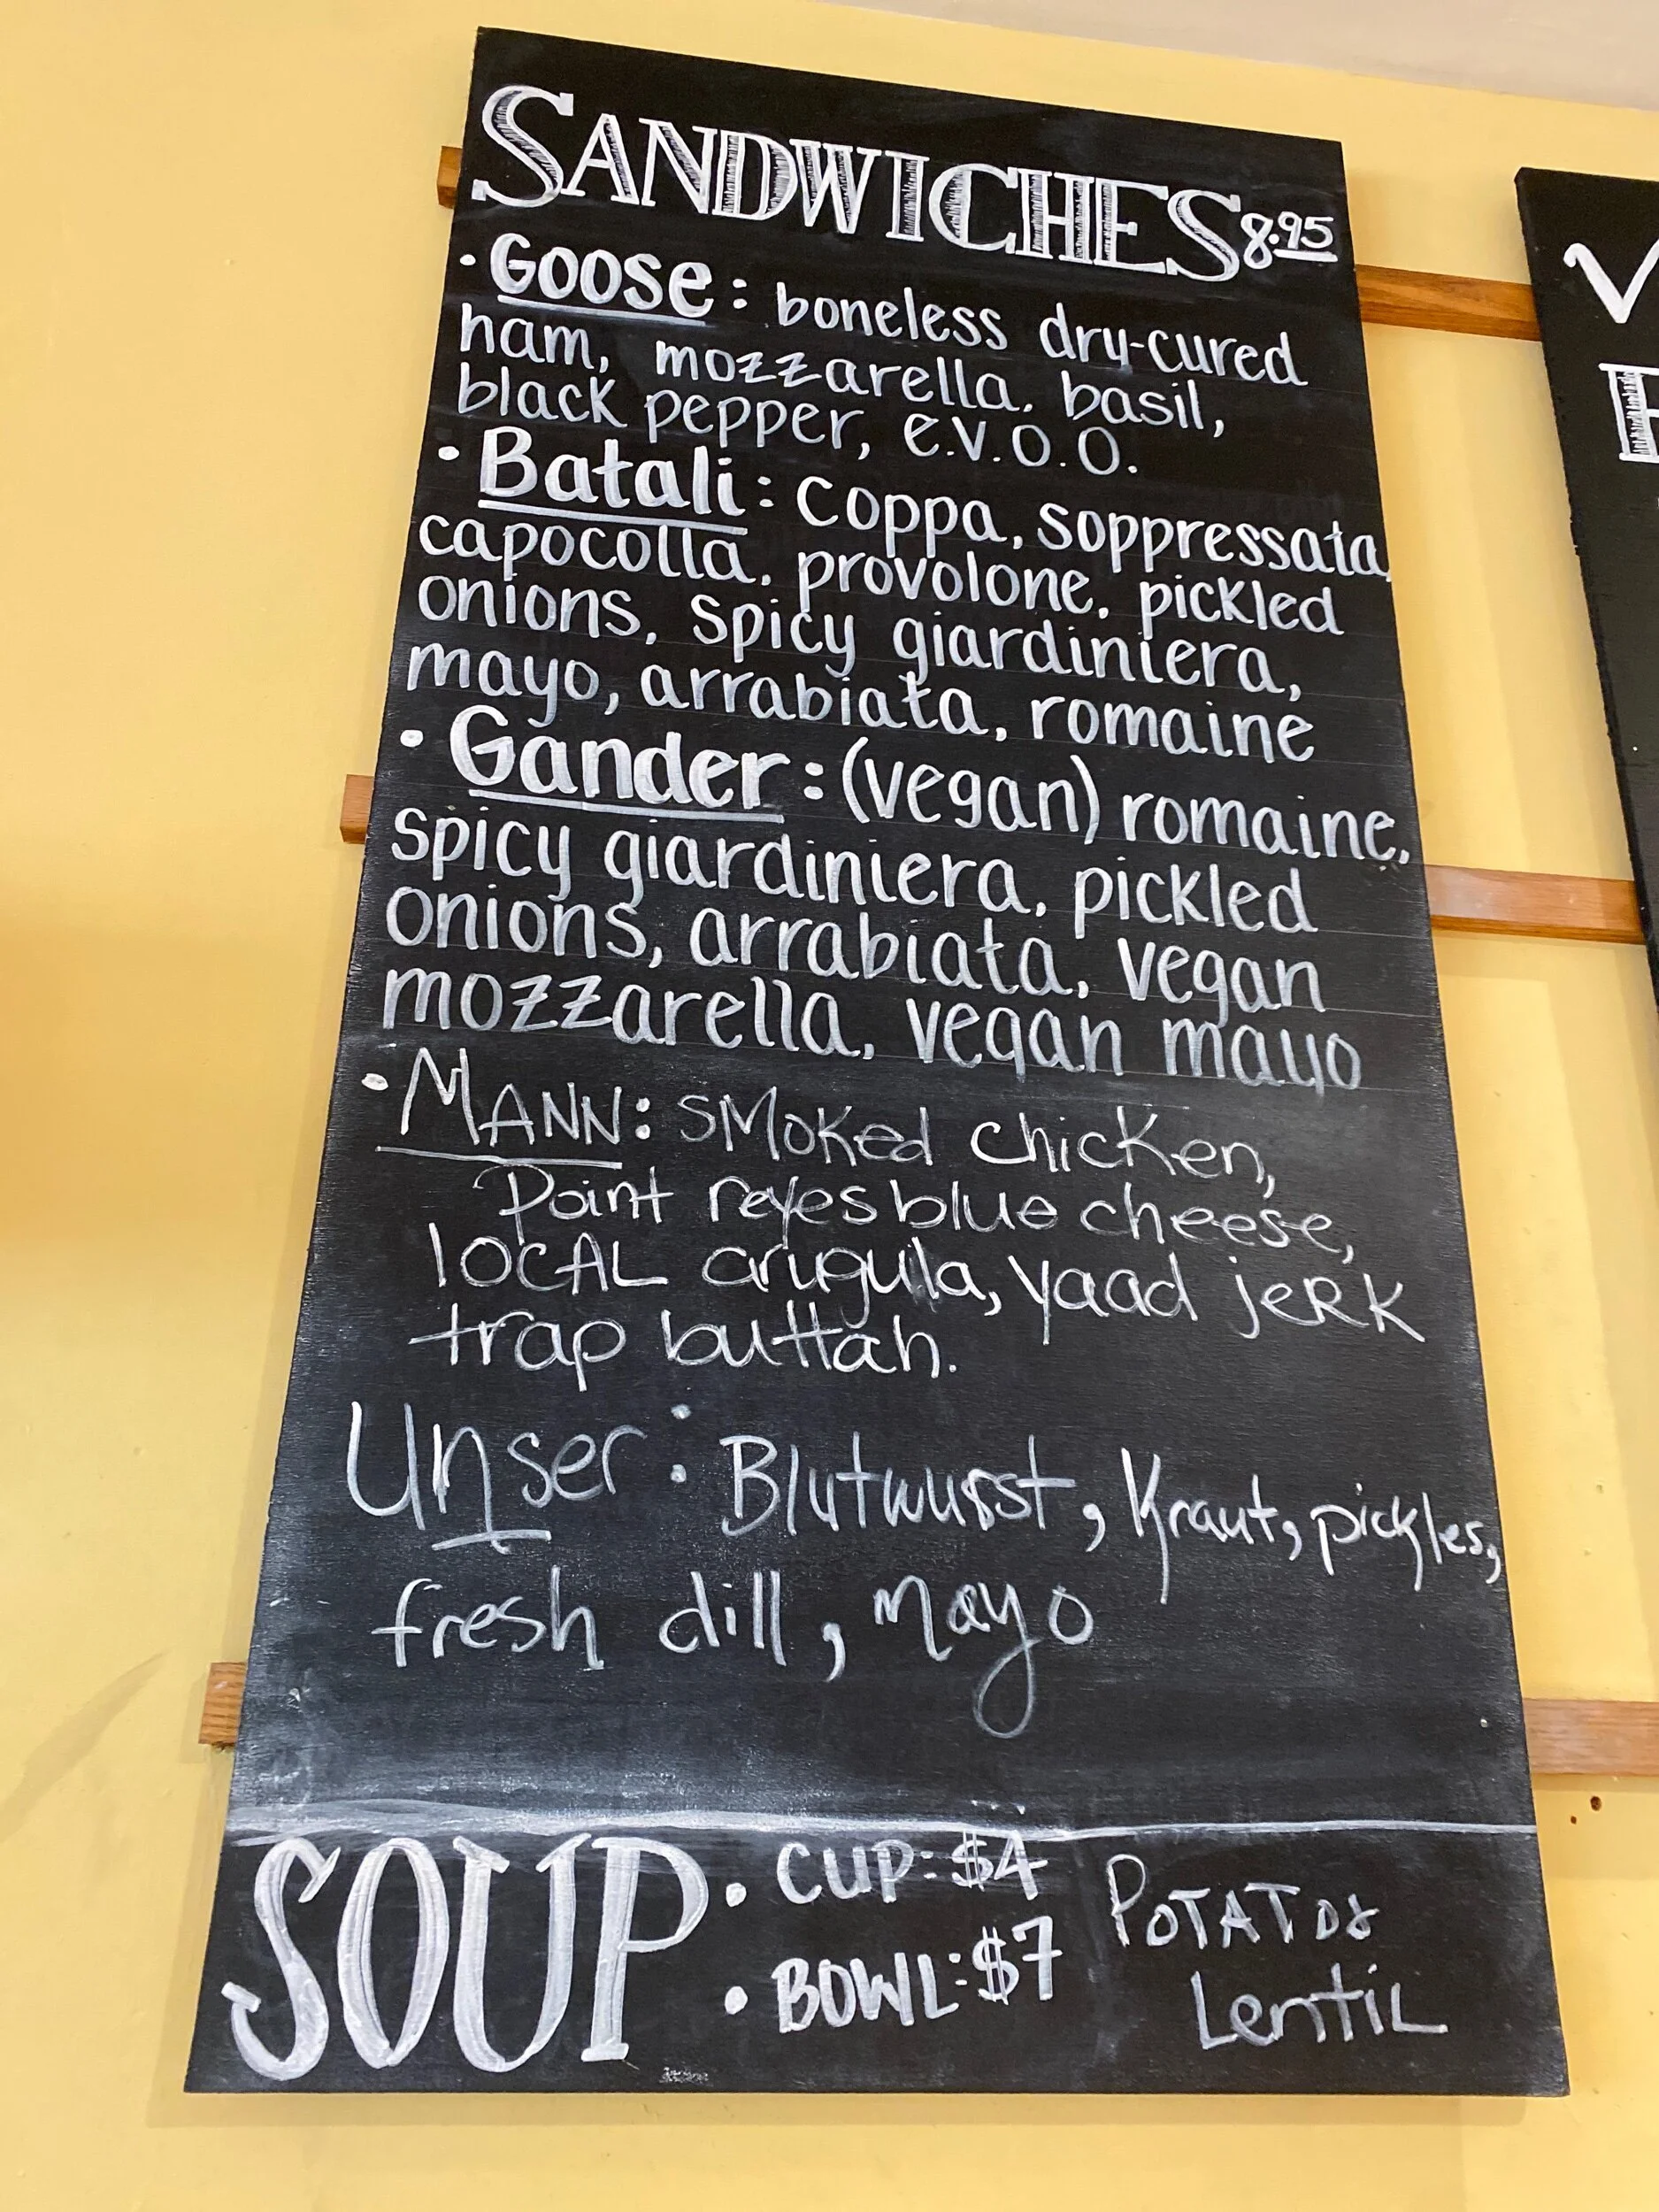 SANDWICHES 8.95
• Goose: boneless dry-cured
ham, mozzarella, basil,
black pepper, e.v.o.o.
• Batali: coppa, soppressata,
capocolla, provolone, pickled
onions, spicy giardiniera,
mayo, arrabiata, romaine
• Gander: (vegan) romaine,
spicy giardiniera, pickled
onions, arrabiata, vegan
mozzarella, vegan mayo
• MANN: SMOKed chicken,
Point reyes blue cheese,
lOCAL arugula, yaad jeRK
trap buttah.
Unser: Blutwurst, Kraut, pickles,
fresh dill, mayo
SOUP • CUP: $4
• BOWL: $7
Lentil